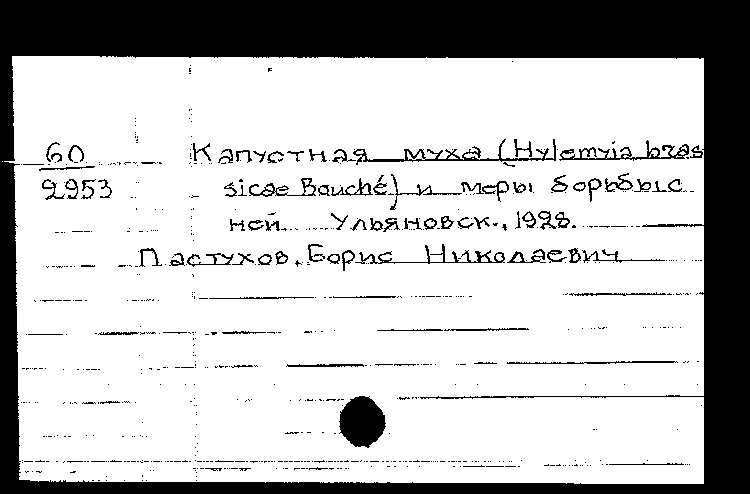 60 Капустная муха (Hylemyia bras
2953 sicae Bouché) и меры борьбы с
ней Ульяновск., 1928.
Пастухов, Борис Николаевич